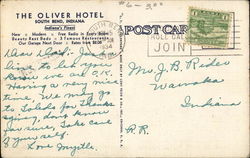 THE OLIVER HOTEL
SOUTH BEND, INDIANA
Indiana's Finest
New • Modern • Free Radio in Every Room
Beauty Rest Beds • 3 Famous Restaurants
Our Garage Next Door • Rates from $2.00
POST CARD
1934
JOIN
Just a
line to let you
know we are O.K.
Having a very nice
time. We may go
to Toledo for Thanks-
giving, don't know
for sure. Take care
of yourself.
Love Myrtle.
Mrs. J. B. Rideo
Wawaka
Indiana
R.R.